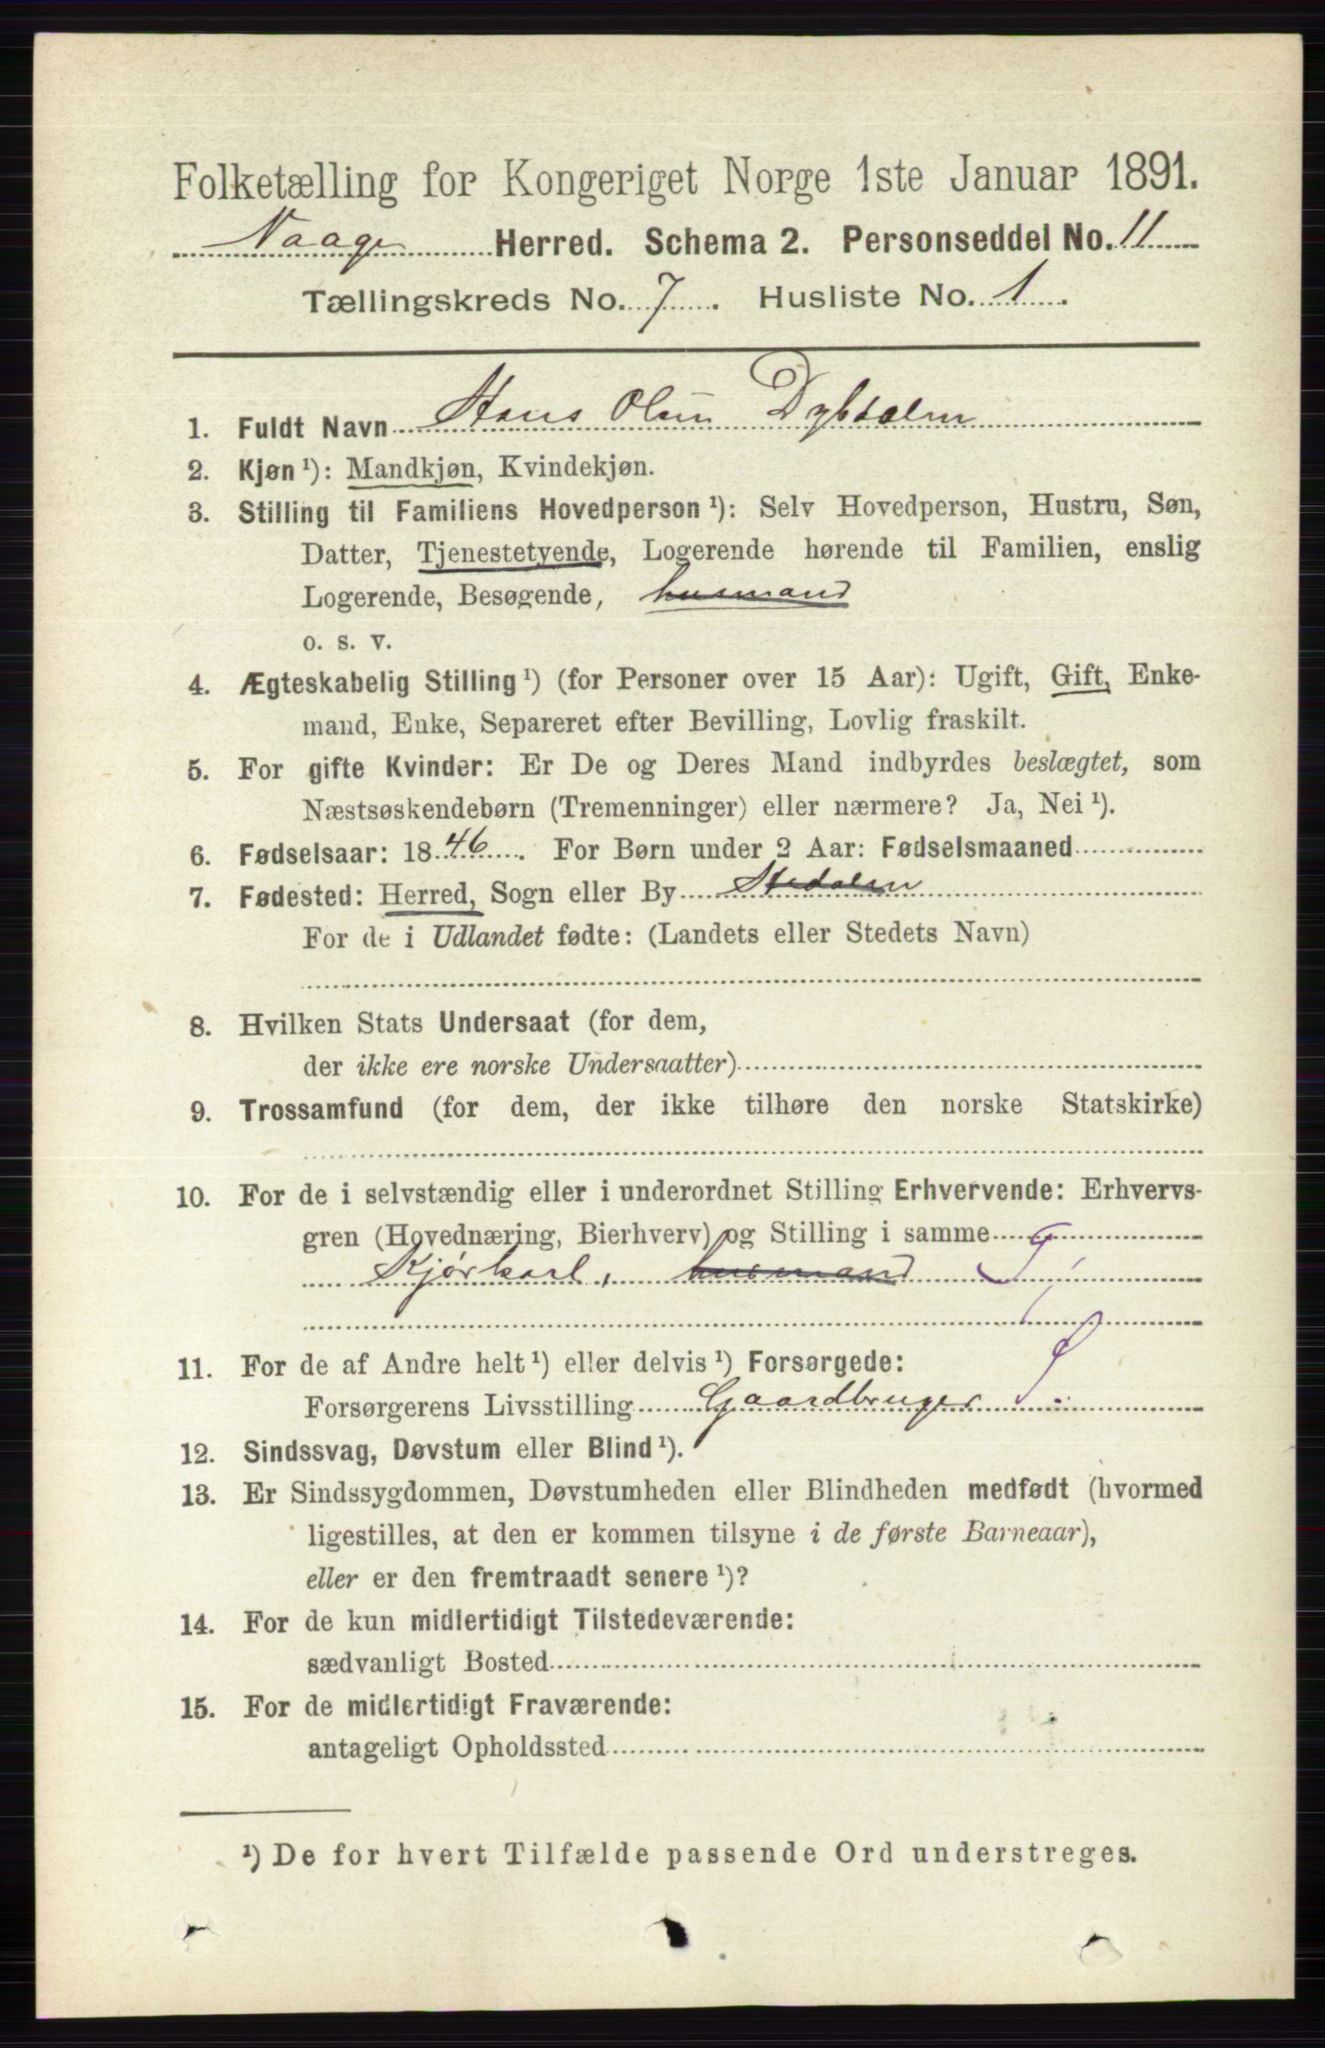 Folketælling for Kongeriget Norge 1ste Januar 1891.
Vaage Herred. Schema 2. Personseddel No. 11
Tællingskreds No. 7. Husliste No. 1.
1. Fuldt Navn Hans Olsen Dybdalen
2. Kjøn ¹): Mandkjøn, Kvindekjøn.
3. Stilling til Familiens Hovedperson ¹): Selv Hovedperson, Hustru, Søn,
Datter, Tjenestetyende, Logerende hørende til Familien, enslig
Logerende, Besøgende, husmand
o. s. v.
4. Ægteskabelig Stilling ¹) (for Personer over 15 Aar): Ugift, Gift, Enke-
mand, Enke, Separeret efter Bevilling, Lovlig fraskilt.
5. For gifte Kvinder: Er De og Deres Mand indbyrdes beslægtet, som
Næstsøskendebørn (Tremenninger) eller nærmere? Ja, Nei ¹).
6. Fødselsaar: 1846. For Børn under 2 Aar: Fødselsmaaned
7. Fødested: Herred, Sogn eller By Stedalen
For de i Udlandet fødte: (Landets eller Stedets Navn)
8. Hvilken Stats Undersaat (for dem,
der ikke ere norske Undersaatter)
9. Trossamfund (for dem, der ikke tilhøre den norske Statskirke)
10. For de i selvstændig eller i underordnet Stilling Erhvervende: Erhvervs-
gren (Hovednæring, Bierhverv) og Stilling i samme G
Kjørkarl, husmand
11. For de af Andre helt ¹) eller delvis ¹) Forsørgede:
Forsørgerens Livsstilling Gaardbruger
12. Sindssvag, Døvstum eller Blind ¹).
13. Er Sindssygdommen, Døvstumheden eller Blindheden medfødt (hvormed
ligestilles, at den er kommen tilsyne i de første Barneaar),
eller er den fremtraadt senere ¹)?
14. For de kun midlertidigt Tilstedeværende:
sædvanligt Bosted
15. For de midlertidigt Fraværende:
antageligt Opholdssted
¹) De for hvert Tilfælde passende Ord understreges.